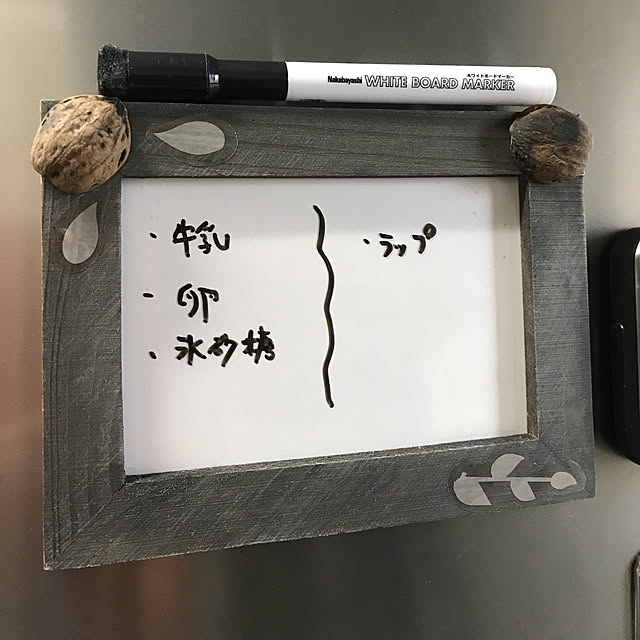 ホワイトボードマーカー
Nakabayashi WHITE BOARD MARKER
・牛乳
・卵
・氷砂糖
・ラップ